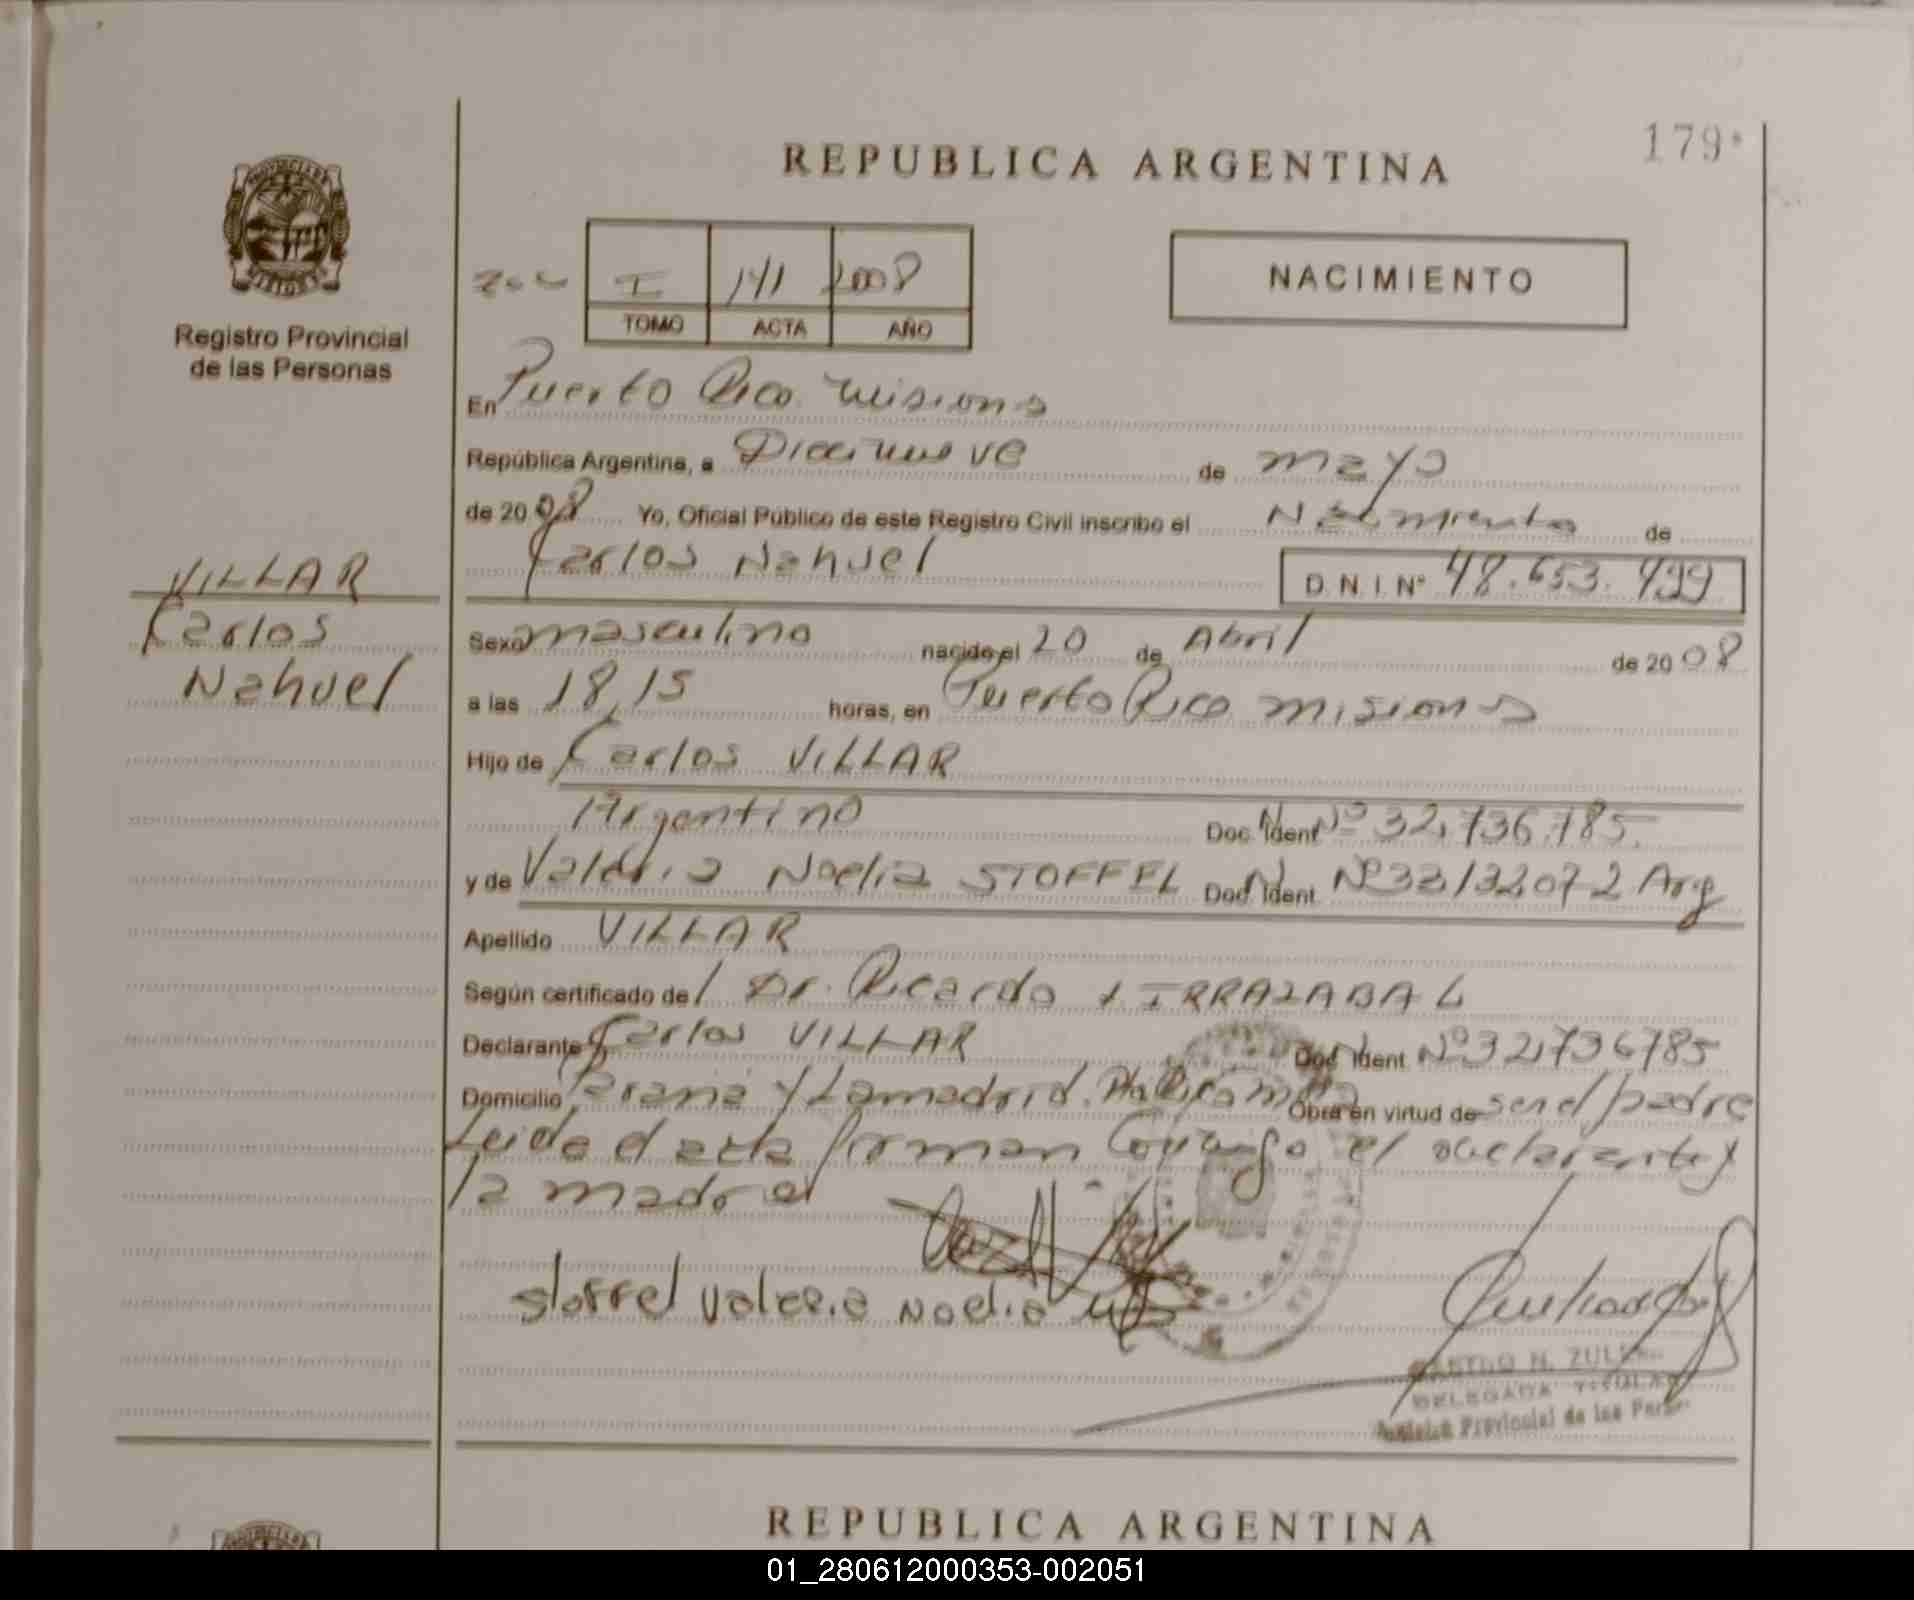 179
REPUBLICA ARGENTINA
NACIMIENTO
I 141 2008
TOMO ACTA AÑO
Registro Provincial
de las Personas
En Puerto Rico Misiones
República Argentina, a Diecinueve de mayo
de 2008 Yo, Oficial Público de este Registro Civil inscribo el Nacimiento de
Carlos Nahuel D.N.I. Nº 48.653.499
VILLAR
Carlos
Nahuel
Sexo masculino nacido el 20 de Abril de 2008
a las 18,15 horas, en Puerto Rico Misiones
Hijo de Carlos VILLAR
Argentino Doc. Ident Nº 32.736.785.
y de Valeria Noelia STOFFEL Doc. Ident. Nº 33132072 Arg
Apellido VILLAR
Según certificado del Dr. Ricardo IRRAZABAL
Declarante Carlos VILLAR Doc. Ident. Nº 32.736785
Domicilio Paraná y Lamadrid. Obra en virtud de ser el padre
Leida el acta firman conmigo el declarante y
la madre
stoffel valeria Noelia
CASTRO N. ZUL
DELEGADA TITULAR
Provincial de las Pers
REPUBLICA ARGENTINA
01_280612000353-002051